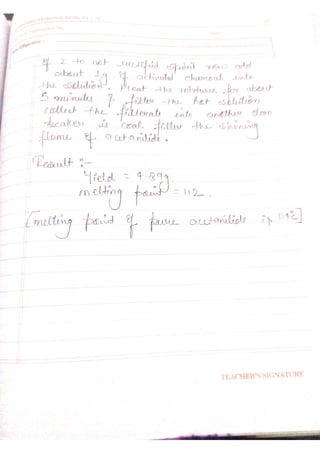 of 2 to hot rectified spirit now add
about 1g of activated charcoal into
the solution. Heat the mixture for about
5 minutes & filter the hot solution
collect the filtrate into another clean
beaker is cool filter the shining
flame of acetanilide.
Result :-
Yield = 4.89g.
melting point = 112.
[melting point of pure acetanilide is 114°C]
TEACHER'S SIGNATURE